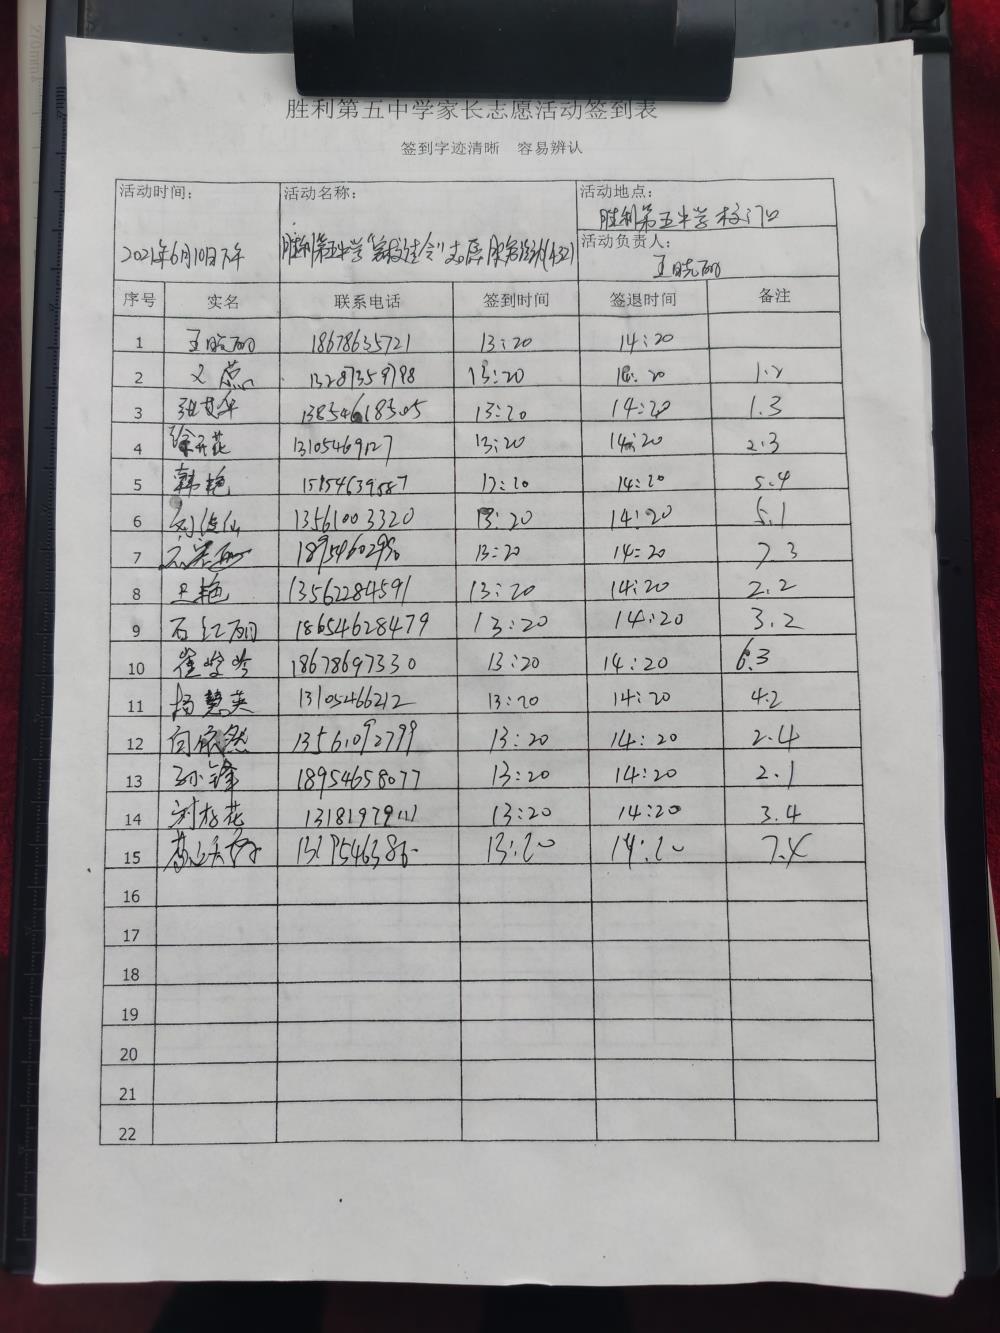 胜利第五中学家长志愿活动签到表
签到字迹清晰 容易辨认
活动时间: 活动名称: 活动地点:
胜利第五中学校门口
2021年6月10日下午 胜利第五中学"家校社会"志愿服务 活动负责人:
王晓丽
序号 实名 联系电话 签到时间 签退时间 备注
1 王晓丽 18678635721 13:20 14:20
2 13287359798 13:20 14:20 1.2
3 13854618505 13:20 14:20 1.3
4 徐开花 13105469127 13:20 14:20 2.3
5 韩艳 15154639587 13:20 14:20 5.4
6 13561003320 13:20 14:20 5.1
7 13:20 14:20 7.3
8 王艳 13562284591 13:20 14:20 2.2
9 石红丽 18654628479 13:20 14:20 3.2
10 18678697330 13:20 14:20 6.3
11 杨慧英 13105466212 13:20 14:20 4.2
12 向依然 13561092799 13:20 14:20 2.4
13 孙锋 18954658077 13:20 14:20 2.1
14 刘格花 13:20 14:20 3.4
15 13:20 14:20 7.4
16
17
18
19
20
21
22